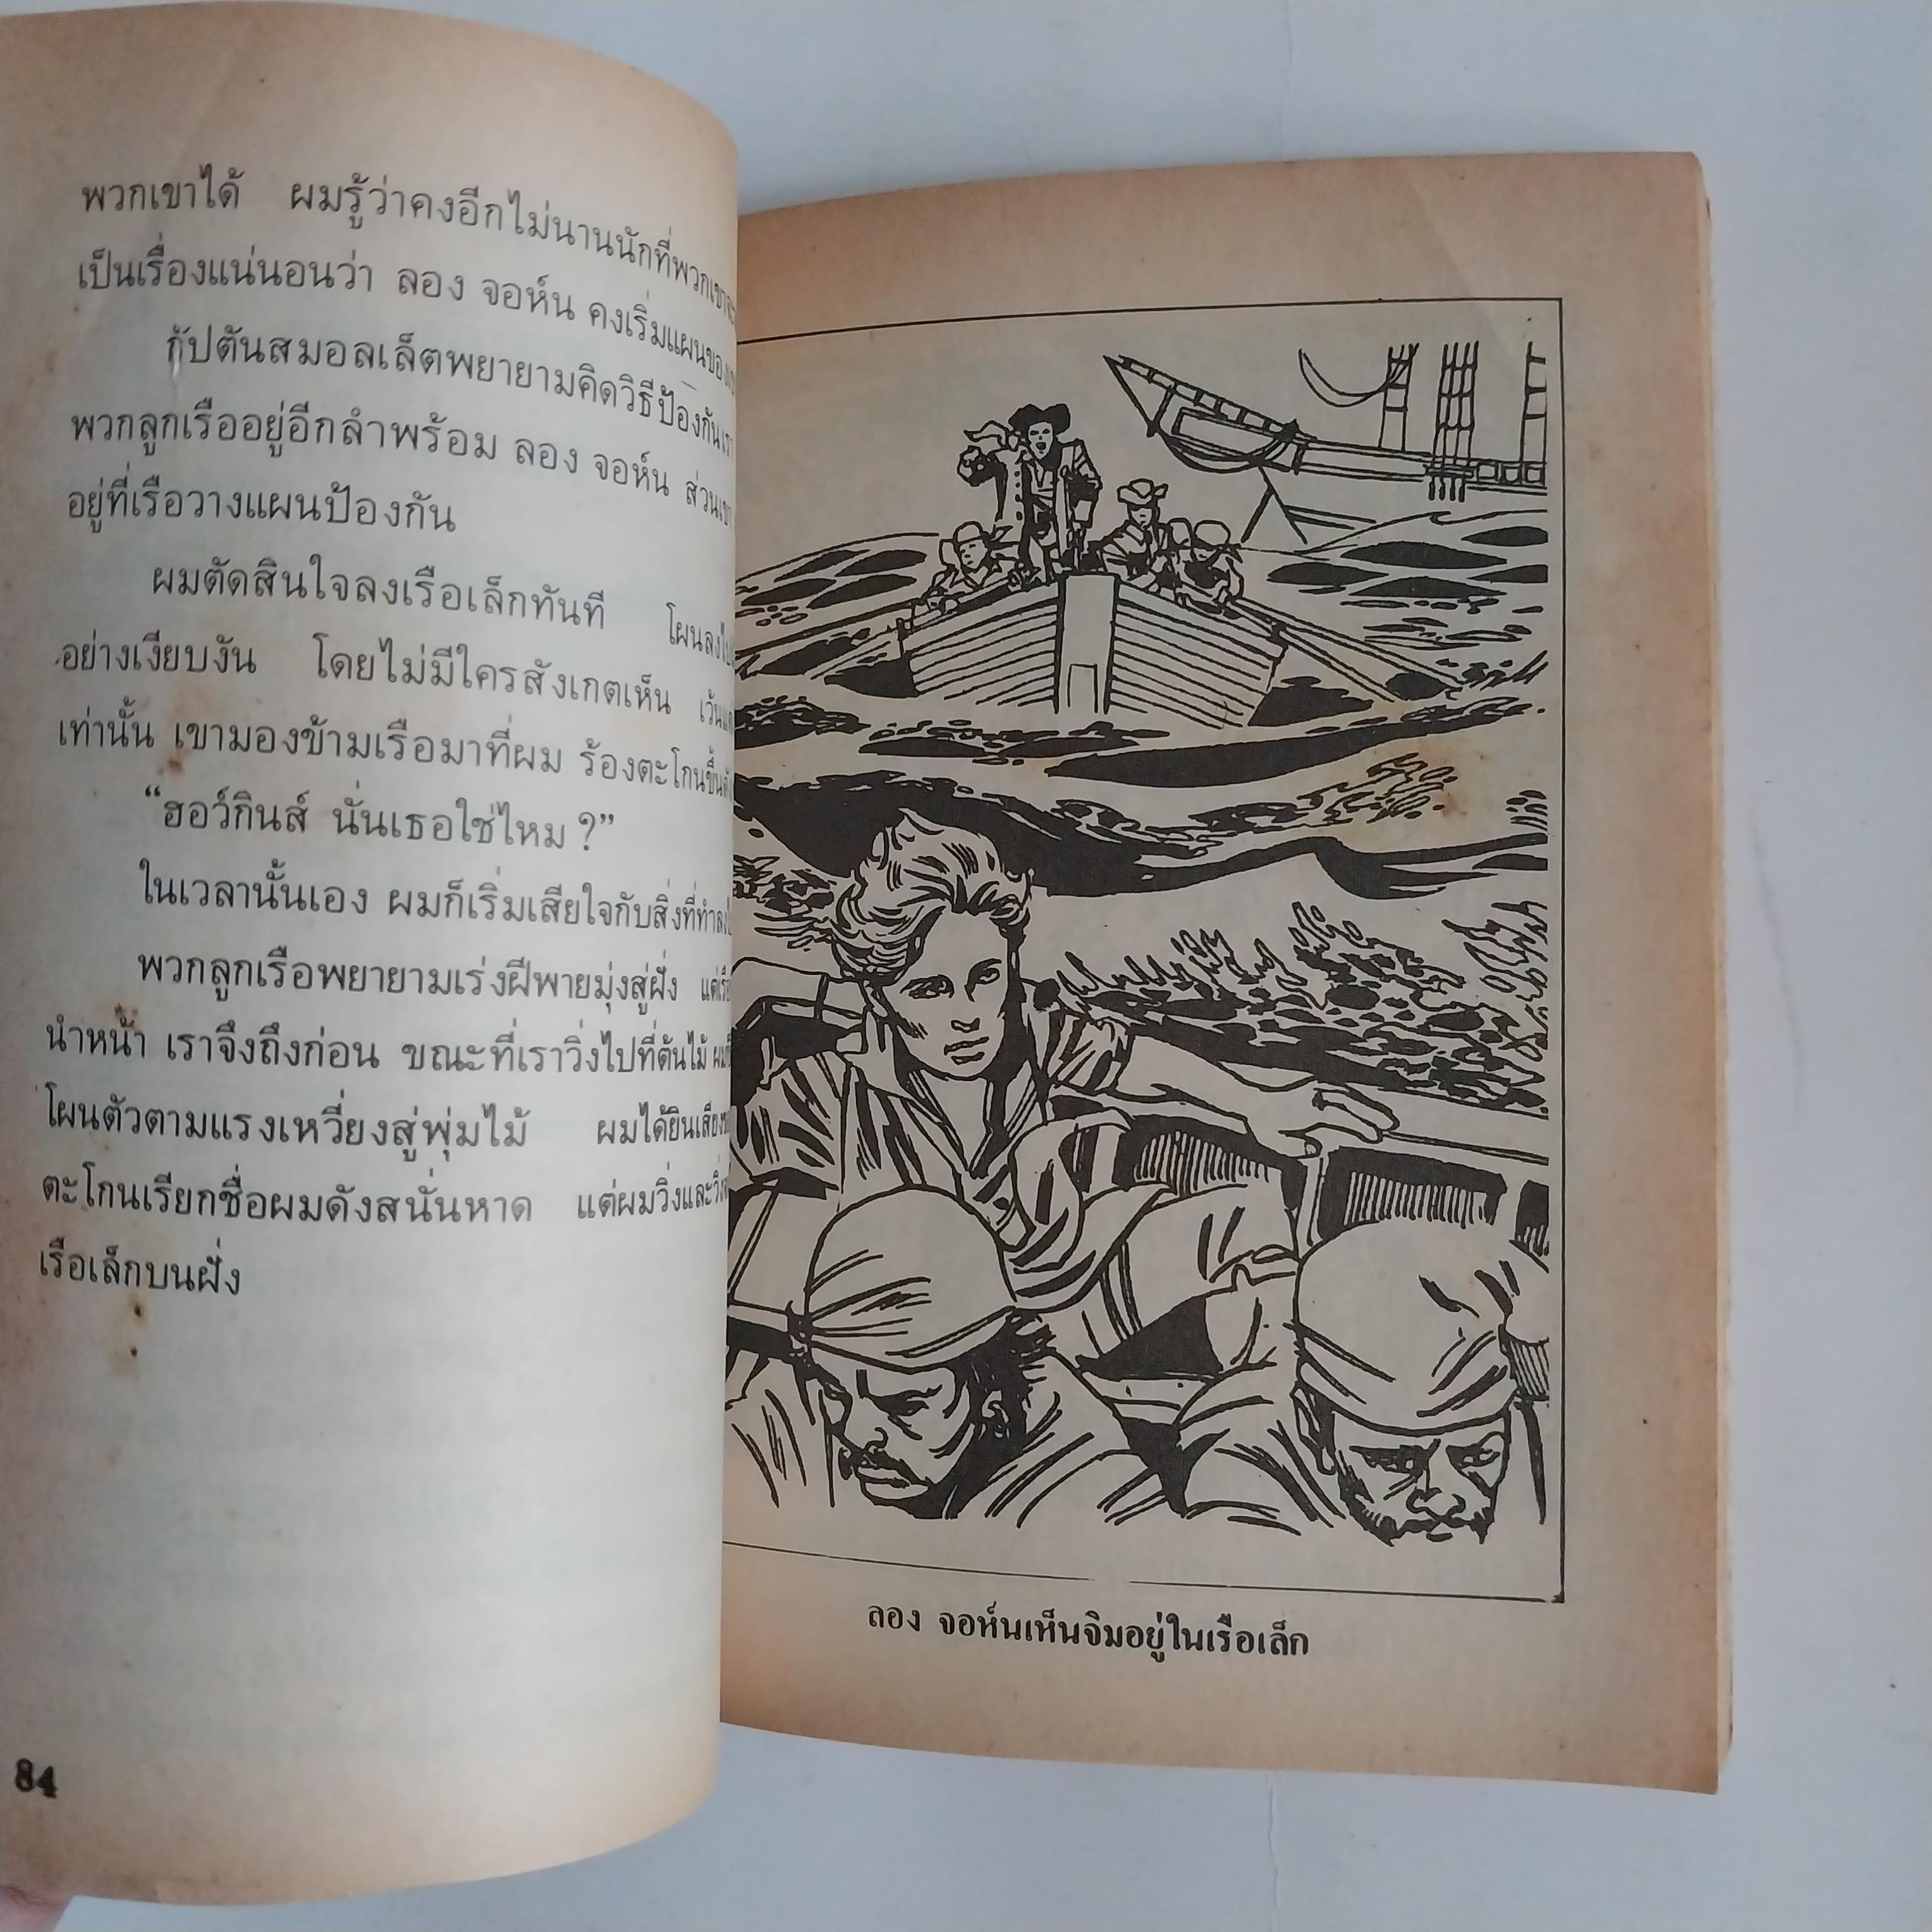 พวกเขาได้ ผมรู้ว่าคงอีกไม่นานนักที่พวกเขาจะ
เป็นเรื่องแน่นอนว่า ลอง จอห์น คงเริ่มแผนของเขา
กัปตันสมอลเล็ตพยายามคิดวิธีป้องกันเรา
พวกลูกเรืออยู่อีกลำพร้อม ลอง จอห์น ส่วนเขา
อยู่ที่เรือวางแผนป้องกัน
ผมตัดสินใจลงเรือเล็กทันที โผนลงไป
อย่างเงียบงัน โดยไม่มีใครสังเกตเห็น เว้นแต่
เท่านั้น เขามองข้ามเรือมาที่ผม ร้องตะโกนขึ้น
“ฮอว์กินส์ นั่นเธอใช่ไหม ?”
ในเวลานั้นเอง ผมก็เริ่มเสียใจกับสิ่งที่ทำลง
พวกลูกเรือพยายามเร่งฝีพายมุ่งสู่ฝั่ง แต่เรือ
นำหน้า เราจึงถึงก่อน ขณะที่เราวิ่งไปที่ต้นไม้
โผนตัวตามแรงเหวี่ยงสู่พุ่มไม้ ผมได้ยินเสียง
ตะโกนเรียกชื่อผมดังสนั่นหาด แต่ผมวิ่งและวิ่ง
เรือเล็กบนฝั่ง
84
ลอง จอห์นเห็นจิมอยู่ในเรือเล็ก